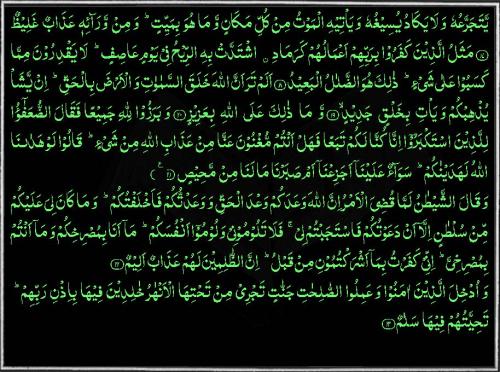 يَّتَجَرَّعُهٗ وَلَا يَكَادُ يُسِيْغُهٗ وَيَاْتِيْهِ الْمَوْتُ مِنْ كُلِّ مَكَانٍ وَّمَا هُوَ بِمَيِّتٍ ؕ وَ مِنْ وَّرَآئِهٖ عَذَابٌ غَلِيْظٌ
﴿۱۷﴾ مَثَلُ الَّذِيْنَ كَفَرُوْا بِرَبِّهِمْ اَعْمَالُهُمْ كَرَمَادِ ۟ اشْتَدَّتْ بِهِ الرِّيْحُ فِيْ يَوْمٍ عَاصِفٍ ؕ لَا يَقْدِرُوْنَ مِمَّا
كَسَبُوْا عَلٰى شَيْءٍ ؕ ذٰلِكَ هُوَ الضَّلٰلُ الْبَعِيْدُ ﴿۱۸﴾ اَلَمْ تَرَ اَنَّ اللّٰهَ خَلَقَ السَّمٰوٰتِ وَ الْاَرْضَ بِالْحَقِّ ؕ اِنْ يَّشَاْ
يُذْهِبْكُمْ وَ يَاْتِ بِخَلْقٍ جَدِيْدٍ ﴿۱۹﴾ وَّ مَا ذٰلِكَ عَلَى اللّٰهِ بِعَزِيْزٍ ﴿۲۰﴾ وَ بَرَزُوْا لِلّٰهِ جَمِيْعًا فَقَالَ الضُّعَفٰٓؤُا
لِلَّذِيْنَ اسْتَكْبَرُوْٓا اِنَّا كُنَّا لَكُمْ تَبَعًا فَهَلْ اَنْتُمْ مُّغْنُوْنَ عَنَّا مِنْ عَذَابِ اللّٰهِ مِنْ شَيْءٍ ؕ قَالُوْا لَوْ هَدٰىنَا
اللّٰهُ لَهَدَيْنٰكُمْ ؕ سَوَآءٌ عَلَيْنَآ اَجَزِعْنَآ اَمْ صَبَرْنَا مَا لَنَا مِنْ مَّحِيْصٍ ﴿۲۱﴾
وَ قَالَ الشَّيْطٰنُ لَمَّا قُضِيَ الْاَمْرُ اِنَّ اللّٰهَ وَعَدَكُمْ وَعْدَ الْحَقِّ وَ وَعَدْتُّكُمْ فَاَخْلَفْتُكُمْ ؕ وَ مَا كَانَ لِيَ عَلَيْكُمْ
مِّنْ سُلْطٰنٍ اِلَّآ اَنْ دَعَوْتُكُمْ فَاسْتَجَبْتُمْ لِيْ ۚ فَلَا تَلُوْمُوْنِيْ وَ لُوْمُوْٓا اَنْفُسَكُمْ ؕ مَآ اَنَا بِمُصْرِخِكُمْ وَ مَآ اَنْتُمْ
بِمُصْرِخِيَّ ؕ اِنِّيْ كَفَرْتُ بِمَآ اَشْرَكْتُمُوْنِ مِنْ قَبْلُ ؕ اِنَّ الظّٰلِمِيْنَ لَهُمْ عَذَابٌ اَلِيْمٌ ﴿۲۲﴾
وَ اُدْخِلَ الَّذِيْنَ اٰمَنُوْا وَ عَمِلُوا الصّٰلِحٰتِ جَنّٰتٍ تَجْرِيْ مِنْ تَحْتِهَا الْاَنْهٰرُ خٰلِدِيْنَ فِيْهَا بِاِذْنِ رَبِّهِمْ ؕ
تَحِيَّتُهُمْ فِيْهَا سَلٰمٌ ﴿۲۳﴾